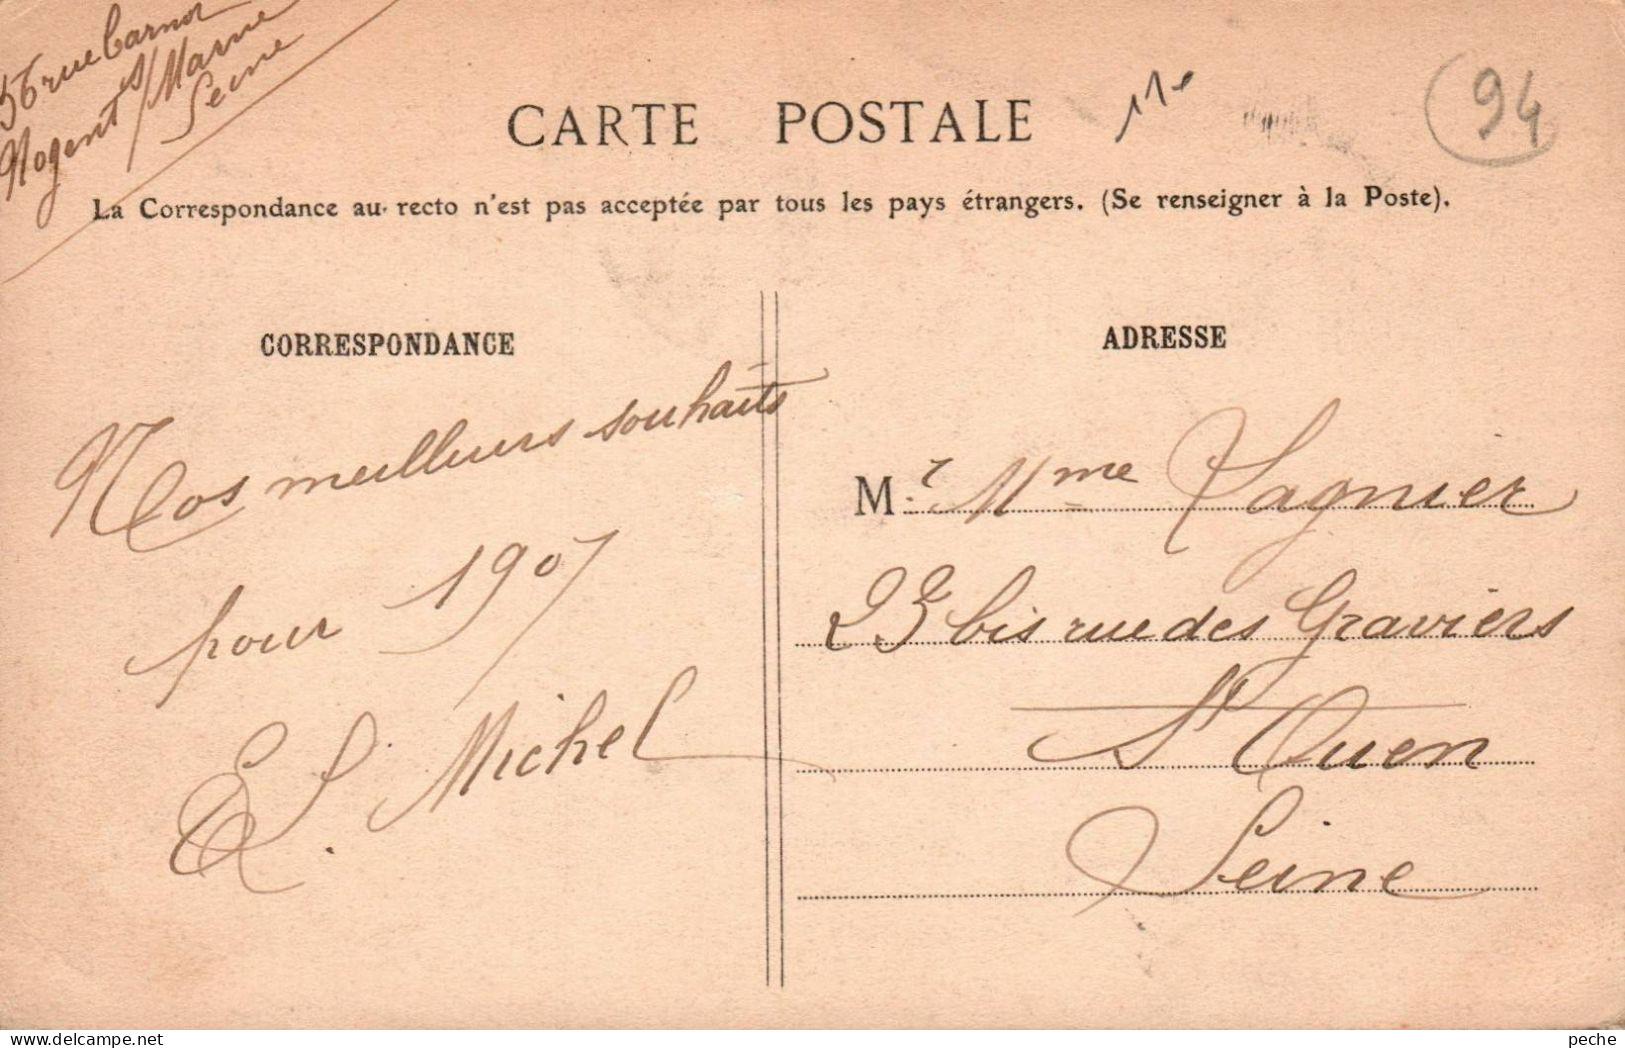 56 rue Carnot
Nogent s/Marne
Seine
CARTE POSTALE
94
La Correspondance au recto n'est pas acceptée par tous les pays étrangers. (Se renseigner à la Poste).
CORRESPONDANCE
Nos meilleurs souhaits
pour 1907
E. Michel
ADRESSE
M. r Mme Lagnier
23 bis rue des Graviers
St Ouen
Seine
peche